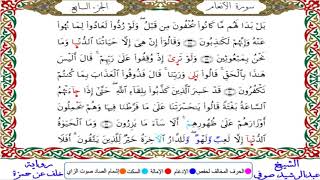 سورة الأنعام
الجزء السابع
بَلْ بَدَا لَهُم مَّا كَانُوا۟ يُخْفُونَ مِن قَبْلُ ۖ وَلَوْ رُدُّوا۟ لَعَادُوا۟ لِمَا نُهُوا۟
عَنْهُ وَإِنَّهُمْ لَكَٰذِبُونَ ۝ وَقَالُوٓا۟ إِنْ هِىَ إِلَّا حَيَاتُنَا ٱلدُّنْيَا وَمَا
نَحْنُ بِمَبْعُوثِينَ ۝ وَلَوْ تَرَىٰٓ إِذْ وُقِفُوا۟ عَلَىٰ رَبِّهِمْ ۚ قَالَ أَلَيْسَ
هَٰذَا بِٱلْحَقِّ ۚ قَالُوا۟ بَلَىٰ وَرَبِّنَا ۚ قَالَ فَذُوقُوا۟ ٱلْعَذَابَ بِمَا كُنتُمْ
تَكْفُرُونَ ۝ قَدْ خَسِرَ ٱلَّذِينَ كَذَّبُوا۟ بِلِقَآءِ ٱللَّهِ ۖ حَتَّىٰٓ إِذَا جَآءَتْهُمُ
ٱلسَّاعَةُ بَغْتَةً قَالُوا۟ يَٰحَسْرَتَنَا عَلَىٰ مَا فَرَّطْنَا فِيهَا وَهُمْ يَحْمِلُونَ
أَوْزَارَهُمْ عَلَىٰ ظُهُورِهِمْ ۚ أَلَا سَآءَ مَا يَزِرُونَ ۝ وَمَا ٱلْحَيَوٰةُ
ٱلدُّنْيَآ إِلَّا لَعِبٌ وَلَهْوٌ ۖ وَلَلدَّارُ ٱلْءَاخِرَةُ خَيْرٌ لِّلَّذِينَ يَتَّقُونَ ۗ أَفَلَا
الشيخ
عبدالرشيد صوفي
الحرف المخالف لحفص
الإدغام
الإمالة
السكت
إشمام الصاد صوت الزاي
رواية
خلف عن حمزة